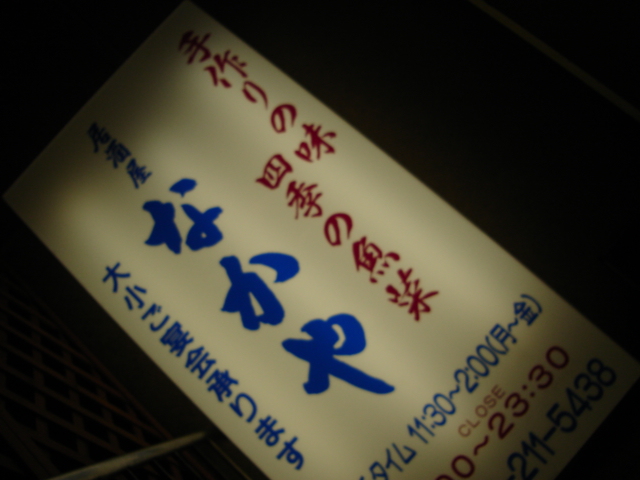 手作りの味
四季の魚菜
居酒屋
なかや
大小ご宴会承ります
タイム 11:30~2:00(月~金)
CLOSE
00~23:30
-211-5438